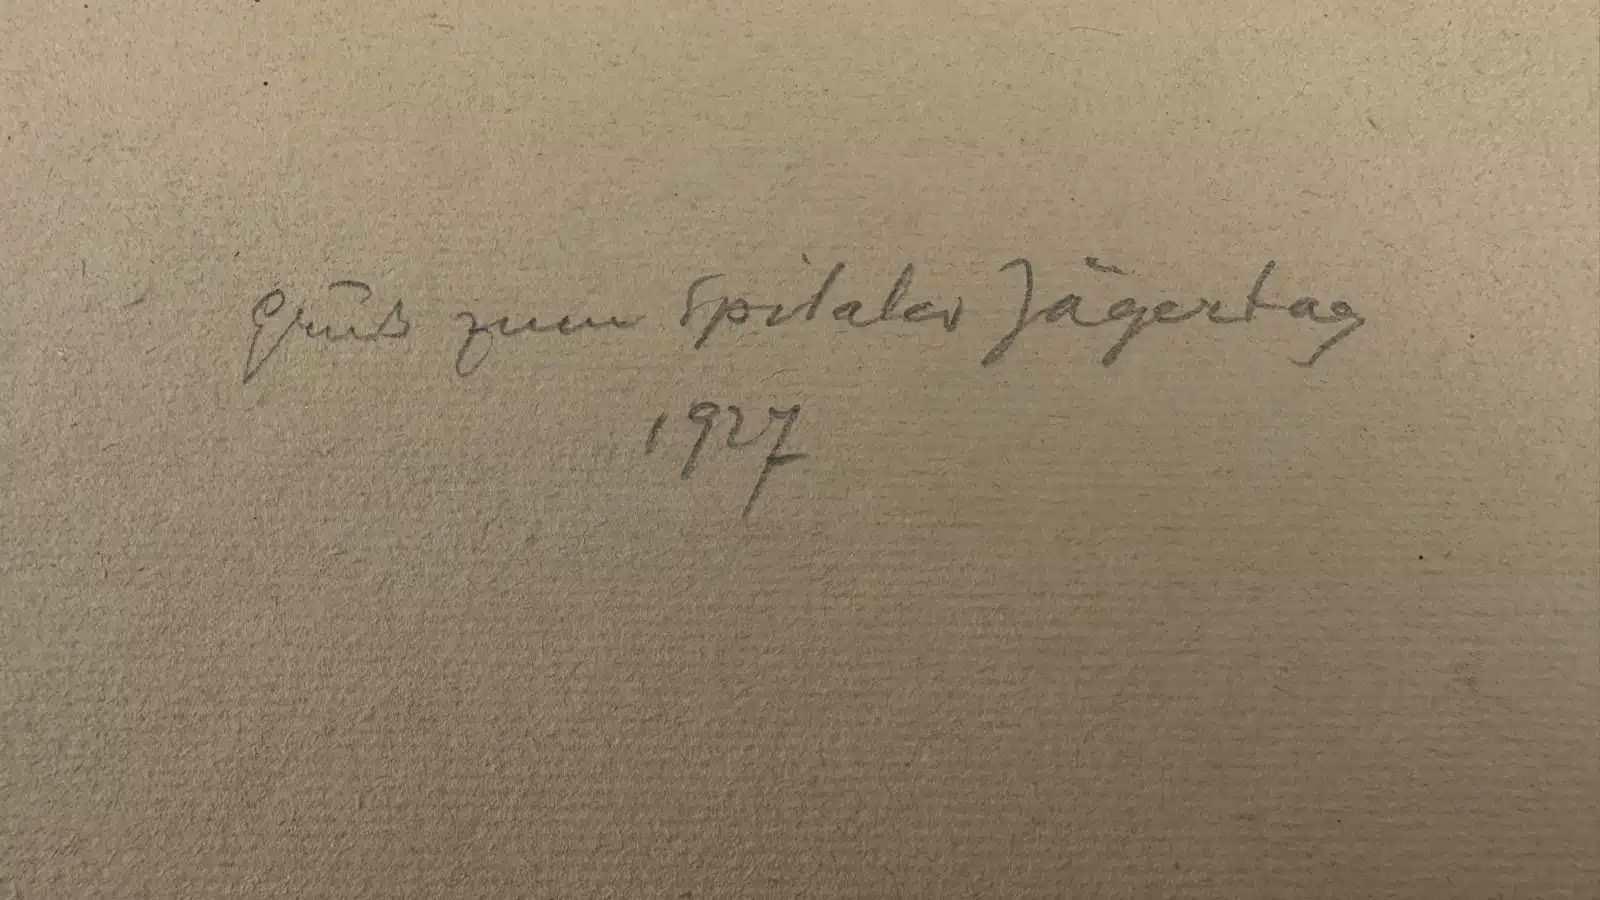 Gruß zum Spitaler Jägertag
1927